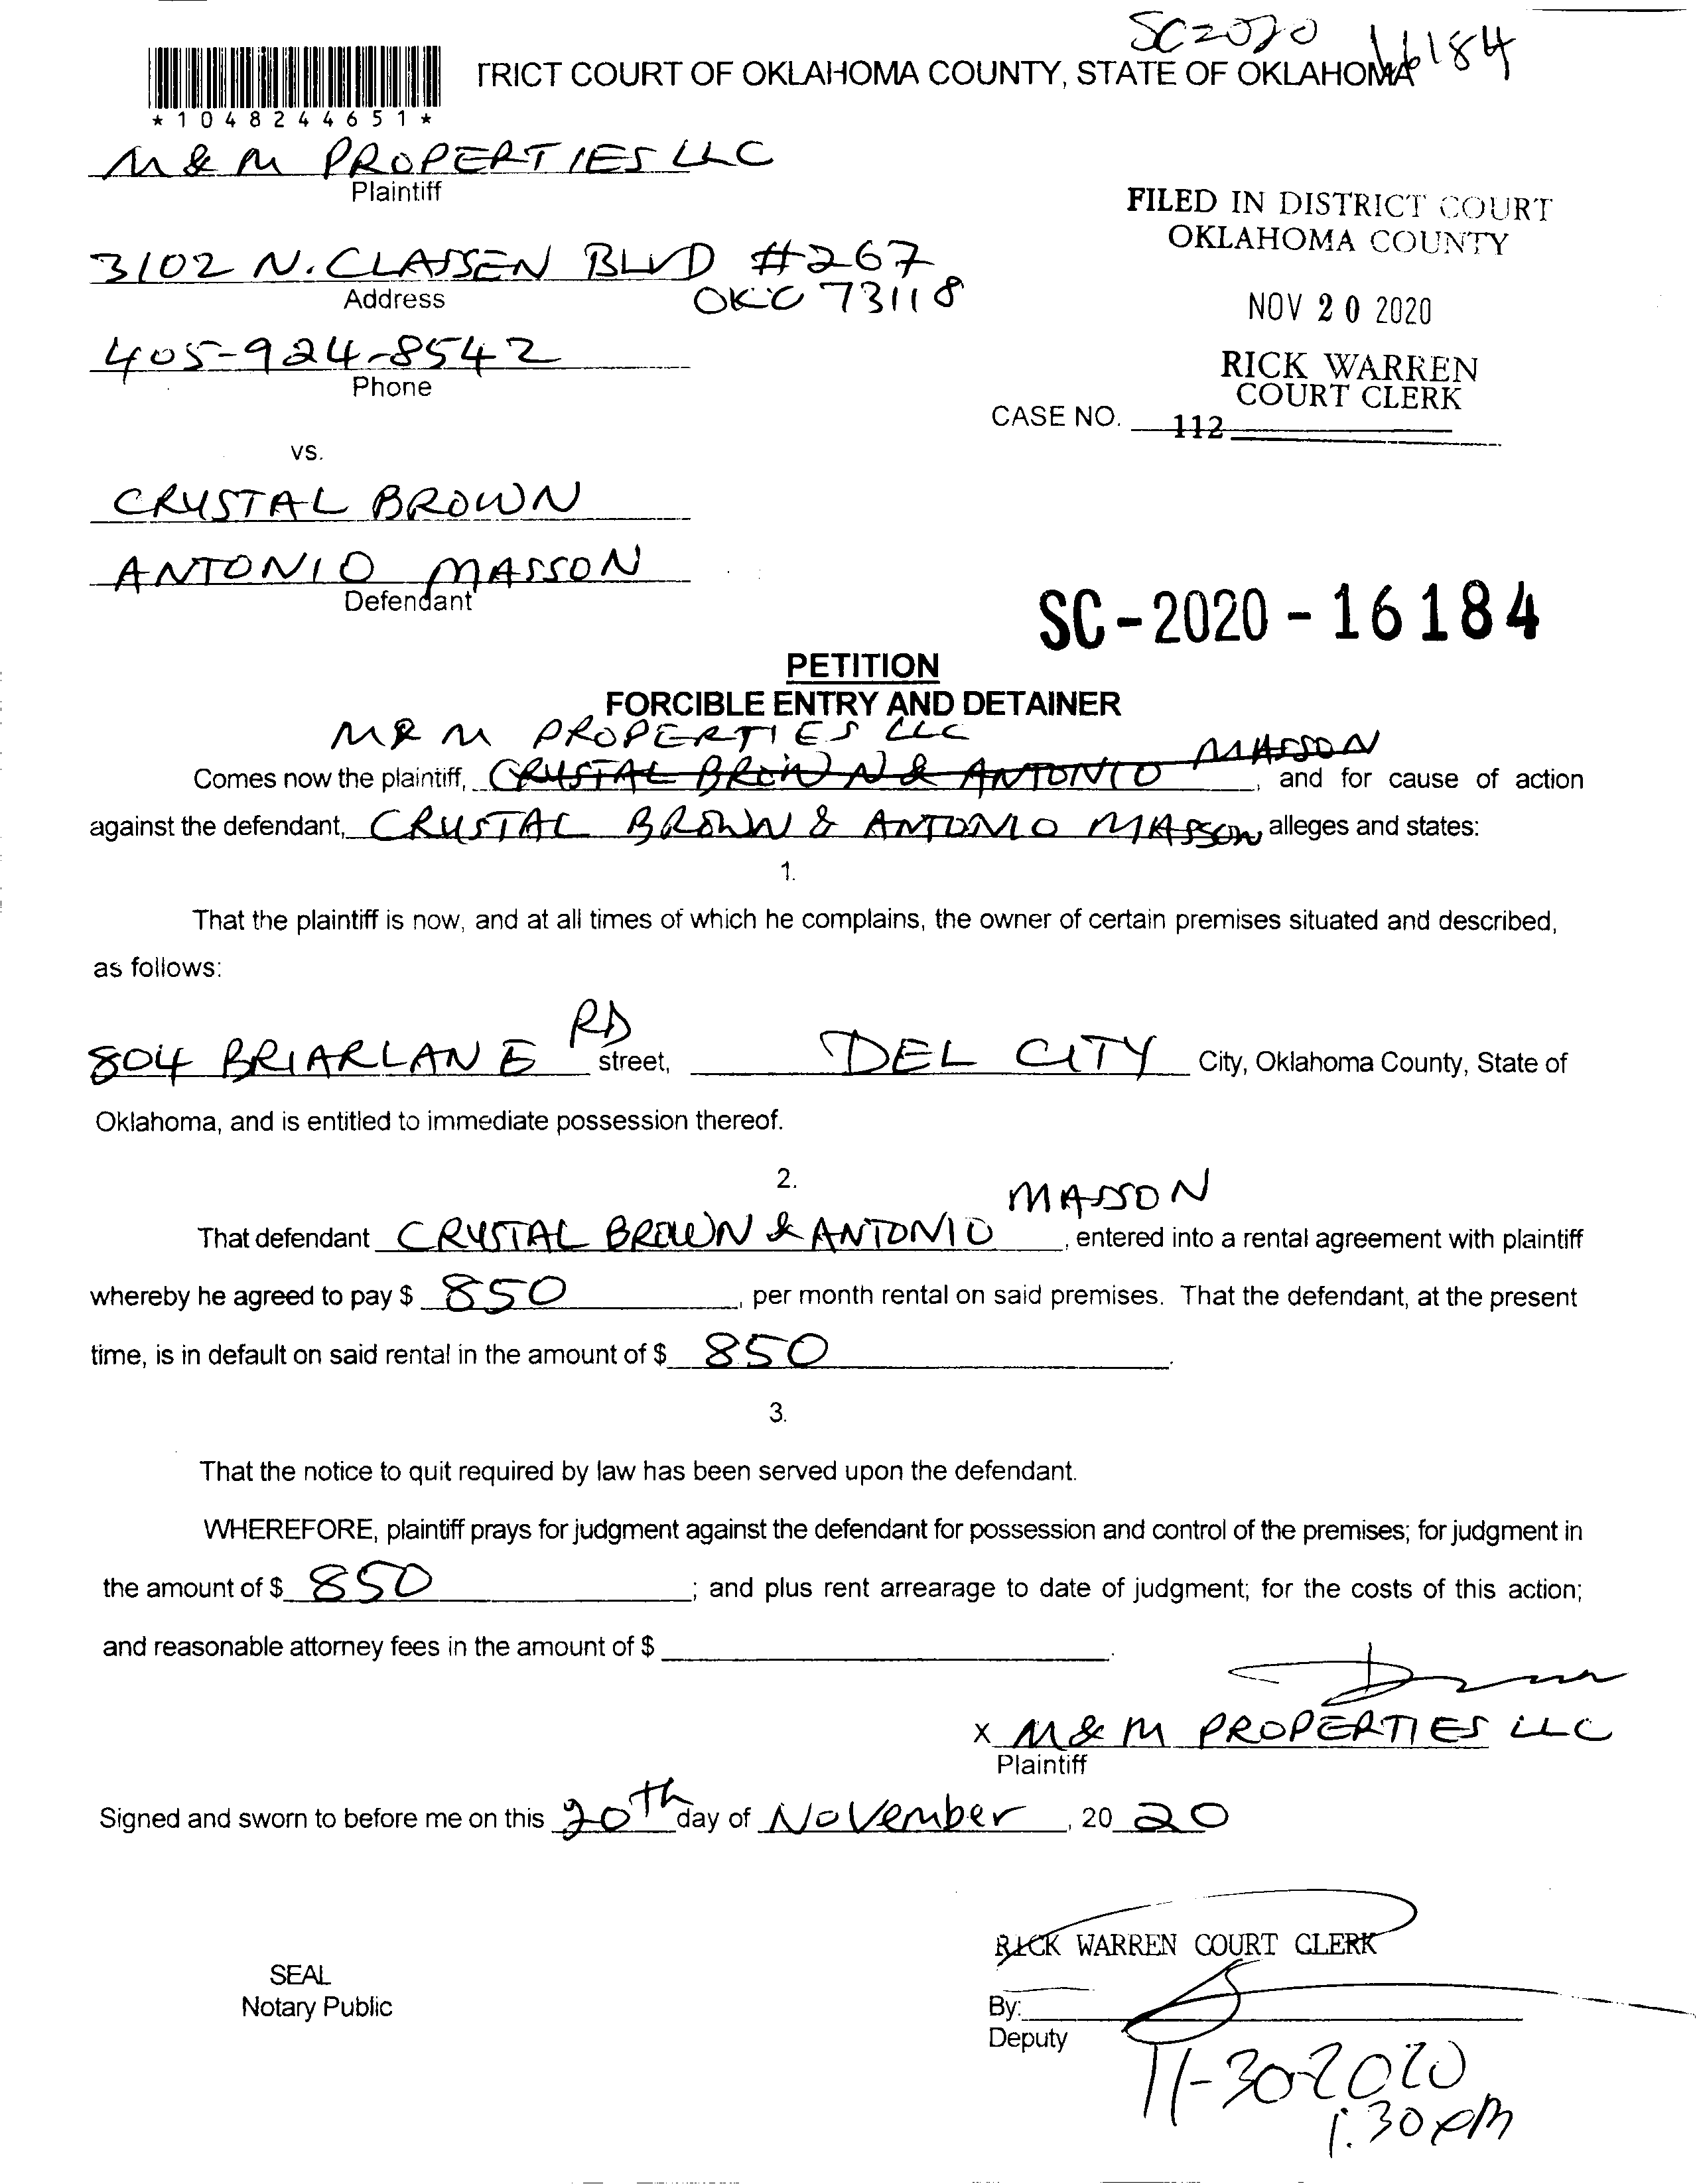 SC2020 16184
TRICT COURT OF OKLAHOMA COUNTY, STATE OF OKLAHOMA
*1048244651*
M & M PROPERTIES LLC
Plaintiff
FILED IN DISTRICT COURT
OKLAHOMA COUNTY
3102 N. CLASSEN BLVD #267
Address
OKC 73118
NOV 20 2020
405-924-8542
Phone
RICK WARREN
COURT CLERK
CASE NO. 112
vs.
CRYSTAL BROWN
ANTONIO MASSON
Defendant
SC-2020-16184
PETITION
FORCIBLE ENTRY AND DETAINER
M & M PROPERTIES LLC
Comes now the plaintiff, CRYSTAL BROWN & ANTONIO MASSON, and for cause of action
against the defendant, CRYSTAL BROWN & ANTONIO MASSON alleges and states:
1.
That the plaintiff is now, and at all times of which he complains, the owner of certain premises situated and described,
as follows:
804 BRIARLANE RD street, DEL CITY City, Oklahoma County, State of
Oklahoma, and is entitled to immediate possession thereof.
2.
That defendant CRYSTAL BROWN & ANTONIO MASSON, entered into a rental agreement with plaintiff
whereby he agreed to pay $ 850, per month rental on said premises. That the defendant, at the present
time, is in default on said rental in the amount of $ 850.
3.
That the notice to quit required by law has been served upon the defendant.
WHEREFORE, plaintiff prays for judgment against the defendant for possession and control of the premises; for judgment in
the amount of $ 850; and plus rent arrearage to date of judgment; for the costs of this action;
and reasonable attorney fees in the amount of $ .
X M & M PROPERTIES LLC
Plaintiff
Signed and sworn to before me on this 20th day of November, 20 20
RICK WARREN COURT CLERK
SEAL
Notary Public
By:
Deputy
11-30-2020
1:30 pm